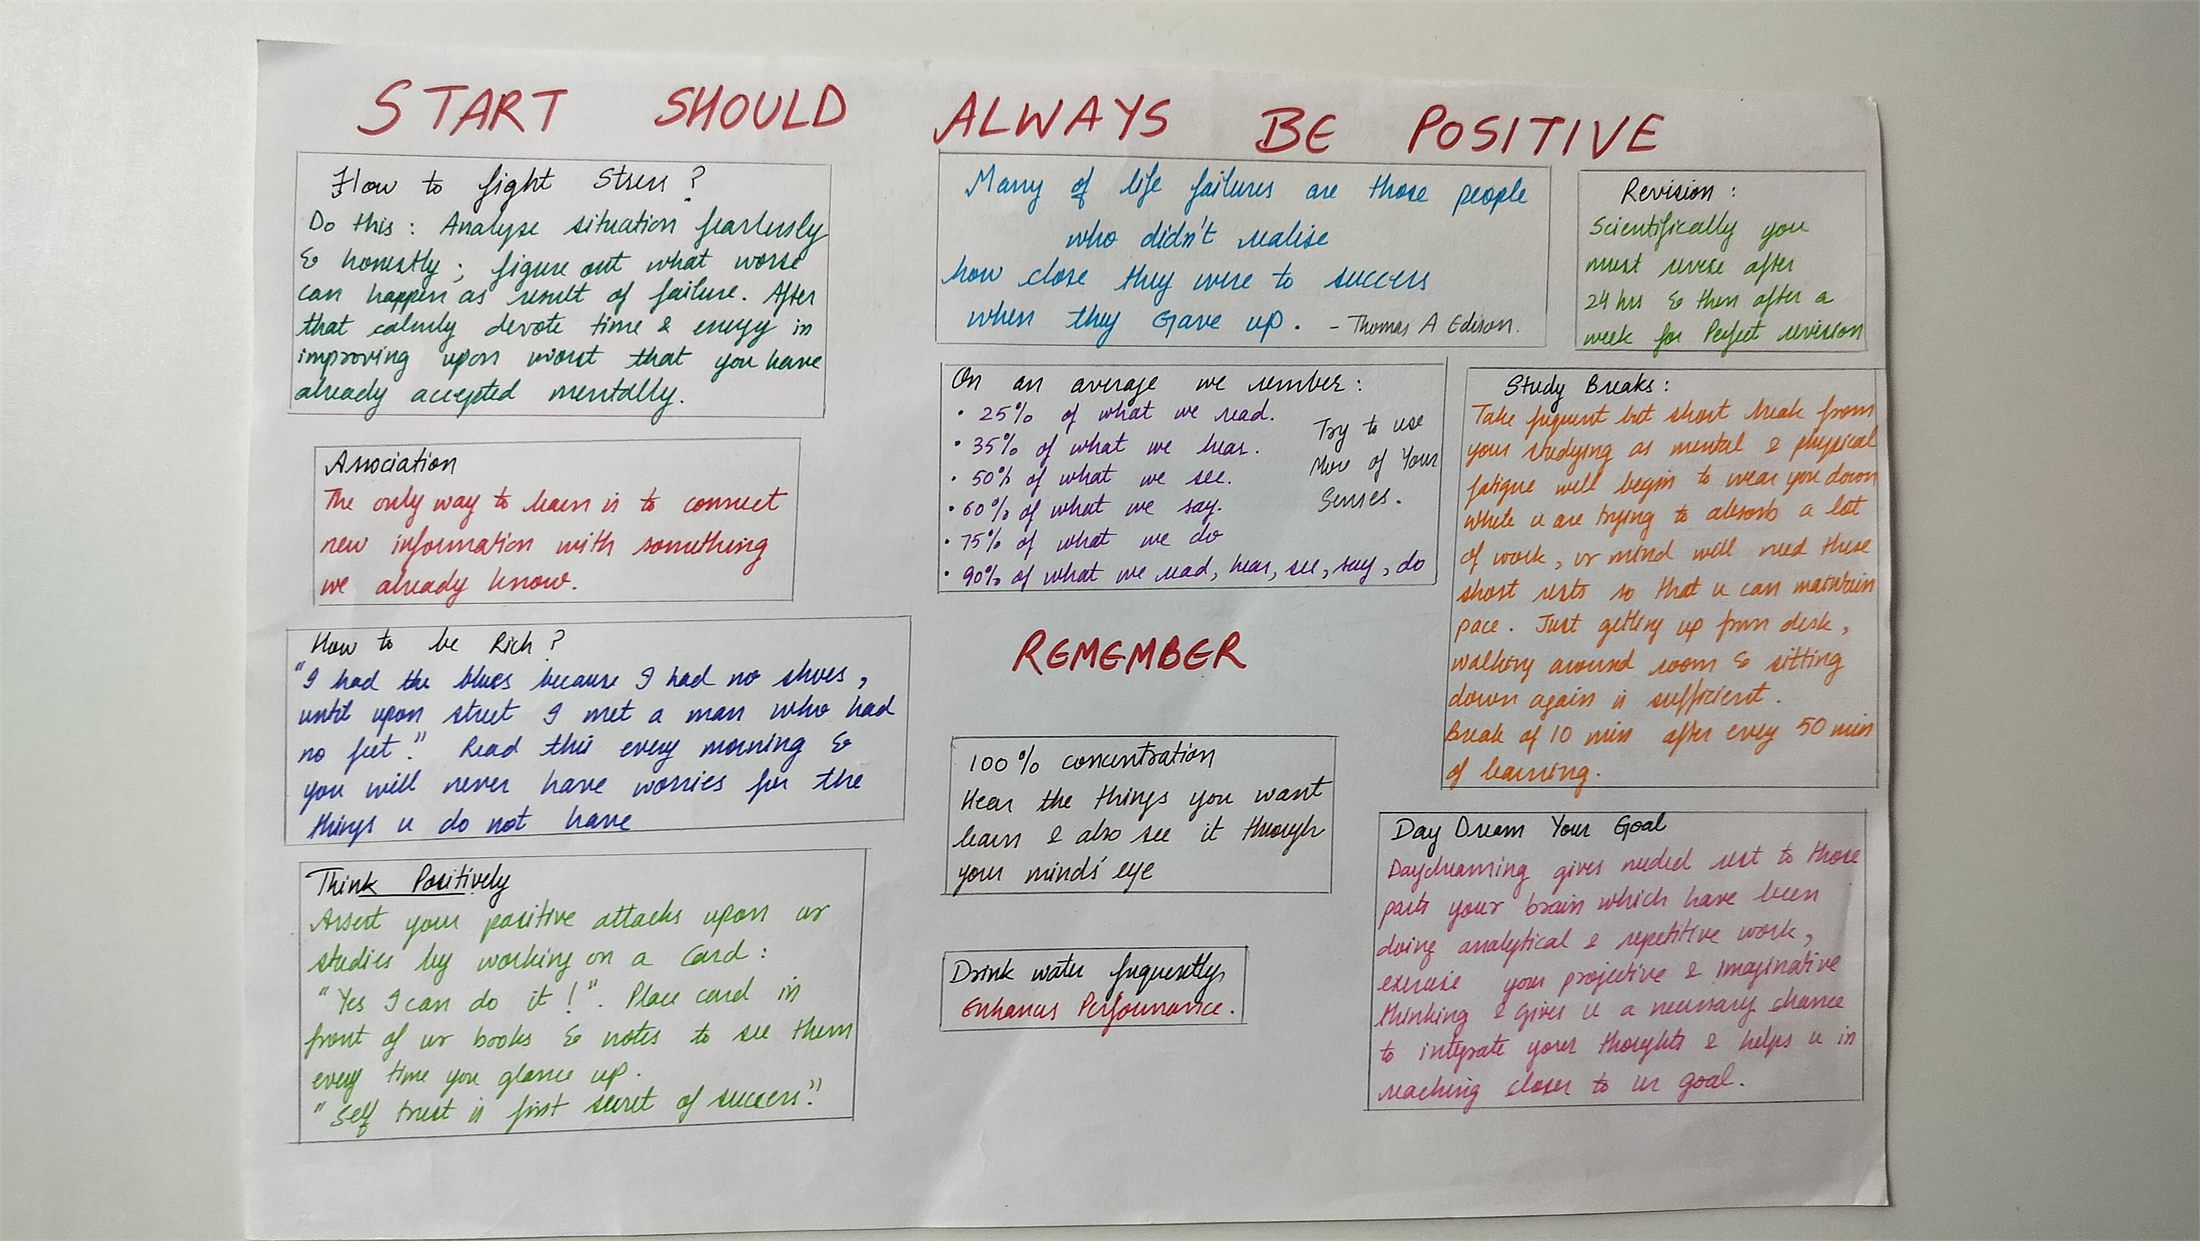 START SHOULD ALWAYS BE POSITIVE
How to fight Stress?
Do this: Analyse situation fearlessly
& honestly; figure out what worse
can happen as result of failure. After
that calmly devote time & energy in
improving upon worst that you have
already accepted mentally.
Association
The only way to learn is to connect
new information with something
we already know.
How to be Rich?
"I had the blues because I had no shoes,
until upon street I met a man who had
no feet." Read this every morning &
you will never have worries for the
things u do not have
Think Positively
Assert your positive attacks upon ur
studies by working on a Card:
"Yes I can do it!". Place card in
front of ur books & notes to see them
every time you glance up.
"Self trust is first secret of success."
Many of life failures are those people
who didn't realise
how close they were to success
when they Gave up. - Thomas A Edison.
On an average we rember:
• 25% of what we read.
• 35% of what we hear.
• 50% of what we see.
• 60% of what we say.
• 75% of what we do
• 90% of what we read, hear, see, say, do
Try to use
More of Your
Senses.
REMEMBER
100% concentration
Hear the things you want
learn & also see it through
your minds' eye
Drink water frequently
Enhances Performance.
Revision:
Scientifically you
must revise after
24 hrs & then after a
week for Perfect revision
Study Breaks:
Take frequent but short break from
your studying as mental & physical
fatigue will begin to wear you down
while u are trying to absorb a lot
of work, ur mind will need these
short rests so that u can maintain
pace. Just getting up from desk,
walking around room & sitting
down again is sufficient.
Break of 10 min after every 50 min
of learning.
Day Dream Your Goal
Daydreaming gives needed rest to those
parts your brain which have been
doing analytical & repetitive work,
exercise your projective & imaginative
thinking & gives u a necessary chance
to integrate your thoughts & helps u in
reaching closer to ur goal.